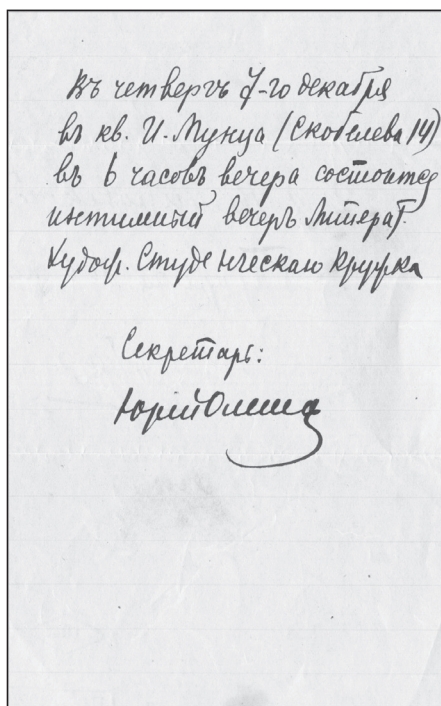 Въ четвергъ 7-го декабря
въ кв. И. Мунца (Скобелева 14)
въ 6 часовъ вечера состоится
интимный вечеръ Литерат.
Худож. Студенческаго Кружка
Секретарь:
Юрий Олеша